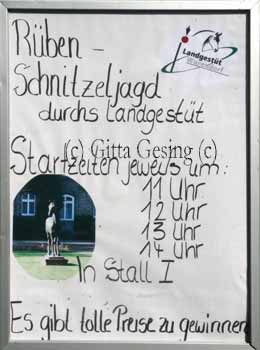 Rüben -
Schnitzeljagd
durchs Landgestüt
Landgestüt
Warendorf
(c) Gitta Gesing (c)
Startzeiten jeweils um:
11 Uhr
12 Uhr
13 Uhr
14 Uhr
In Stall I
Es gibt tolle Preise zu gewinnen